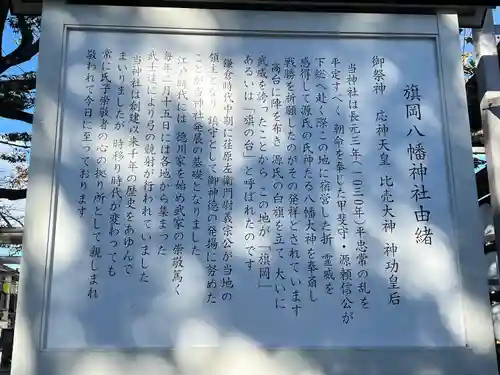 旗岡八幡神社由緒
御祭神　応神天皇　比売大神　神功皇后
当神社は長元三年(一〇三〇年)平忠常の乱を
平定すべく　朝命を奉じた甲斐守・源頼信公が
下総へ赴く際この地に宿営した折　霊威を
感得して源氏の氏神たる八幡大神を奉斎し
戦勝を祈願したのがその発祥とされています
高台に陣を敷き　源氏の白旗を立て　大いに
武威を誇ったことから　この地が「旗岡」
あるいは「旗の台」と呼ばれたのです
鎌倉時代中期に荏原左衛門尉義宗公が当地の
領主となり　鎮守として御神徳の発揚に努めた
ことが当神社発展の基礎となりました
江戸時代には　徳川家を始め武家の崇敬篤く
毎年二月十五日には各地から集まった
武士達により弓の競射が行われていました
当神社は創建以来千年の歴史をあゆんで
まいりましたが　時移り時代が変わっても
常に氏子崇敬者の心の拠り所として親しまれ
敬われて今日に至っております